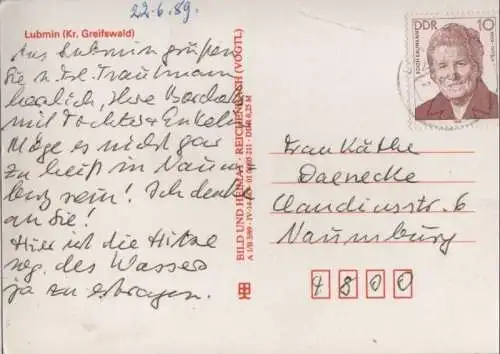 22.6.89.
Lubmin (Kr. Greifswald)
Aus Lubmin grüßen
Sie u. Frl. Trautmann
herzlich, Ihre Borchers
mit Tochter & Enkeln
Möge es nicht gar
zu heiß in Naum
burg sein! Ich denke
an Sie!
Hier ist die Hitze
weg. des Wassers
ja zu ertragen.
BILD UND HEIMAT · REICHENBACH (VOGTL)
DDR 10
Frau Käthe
Daenecke
Claudiusstr. 6
Naumburg
4800